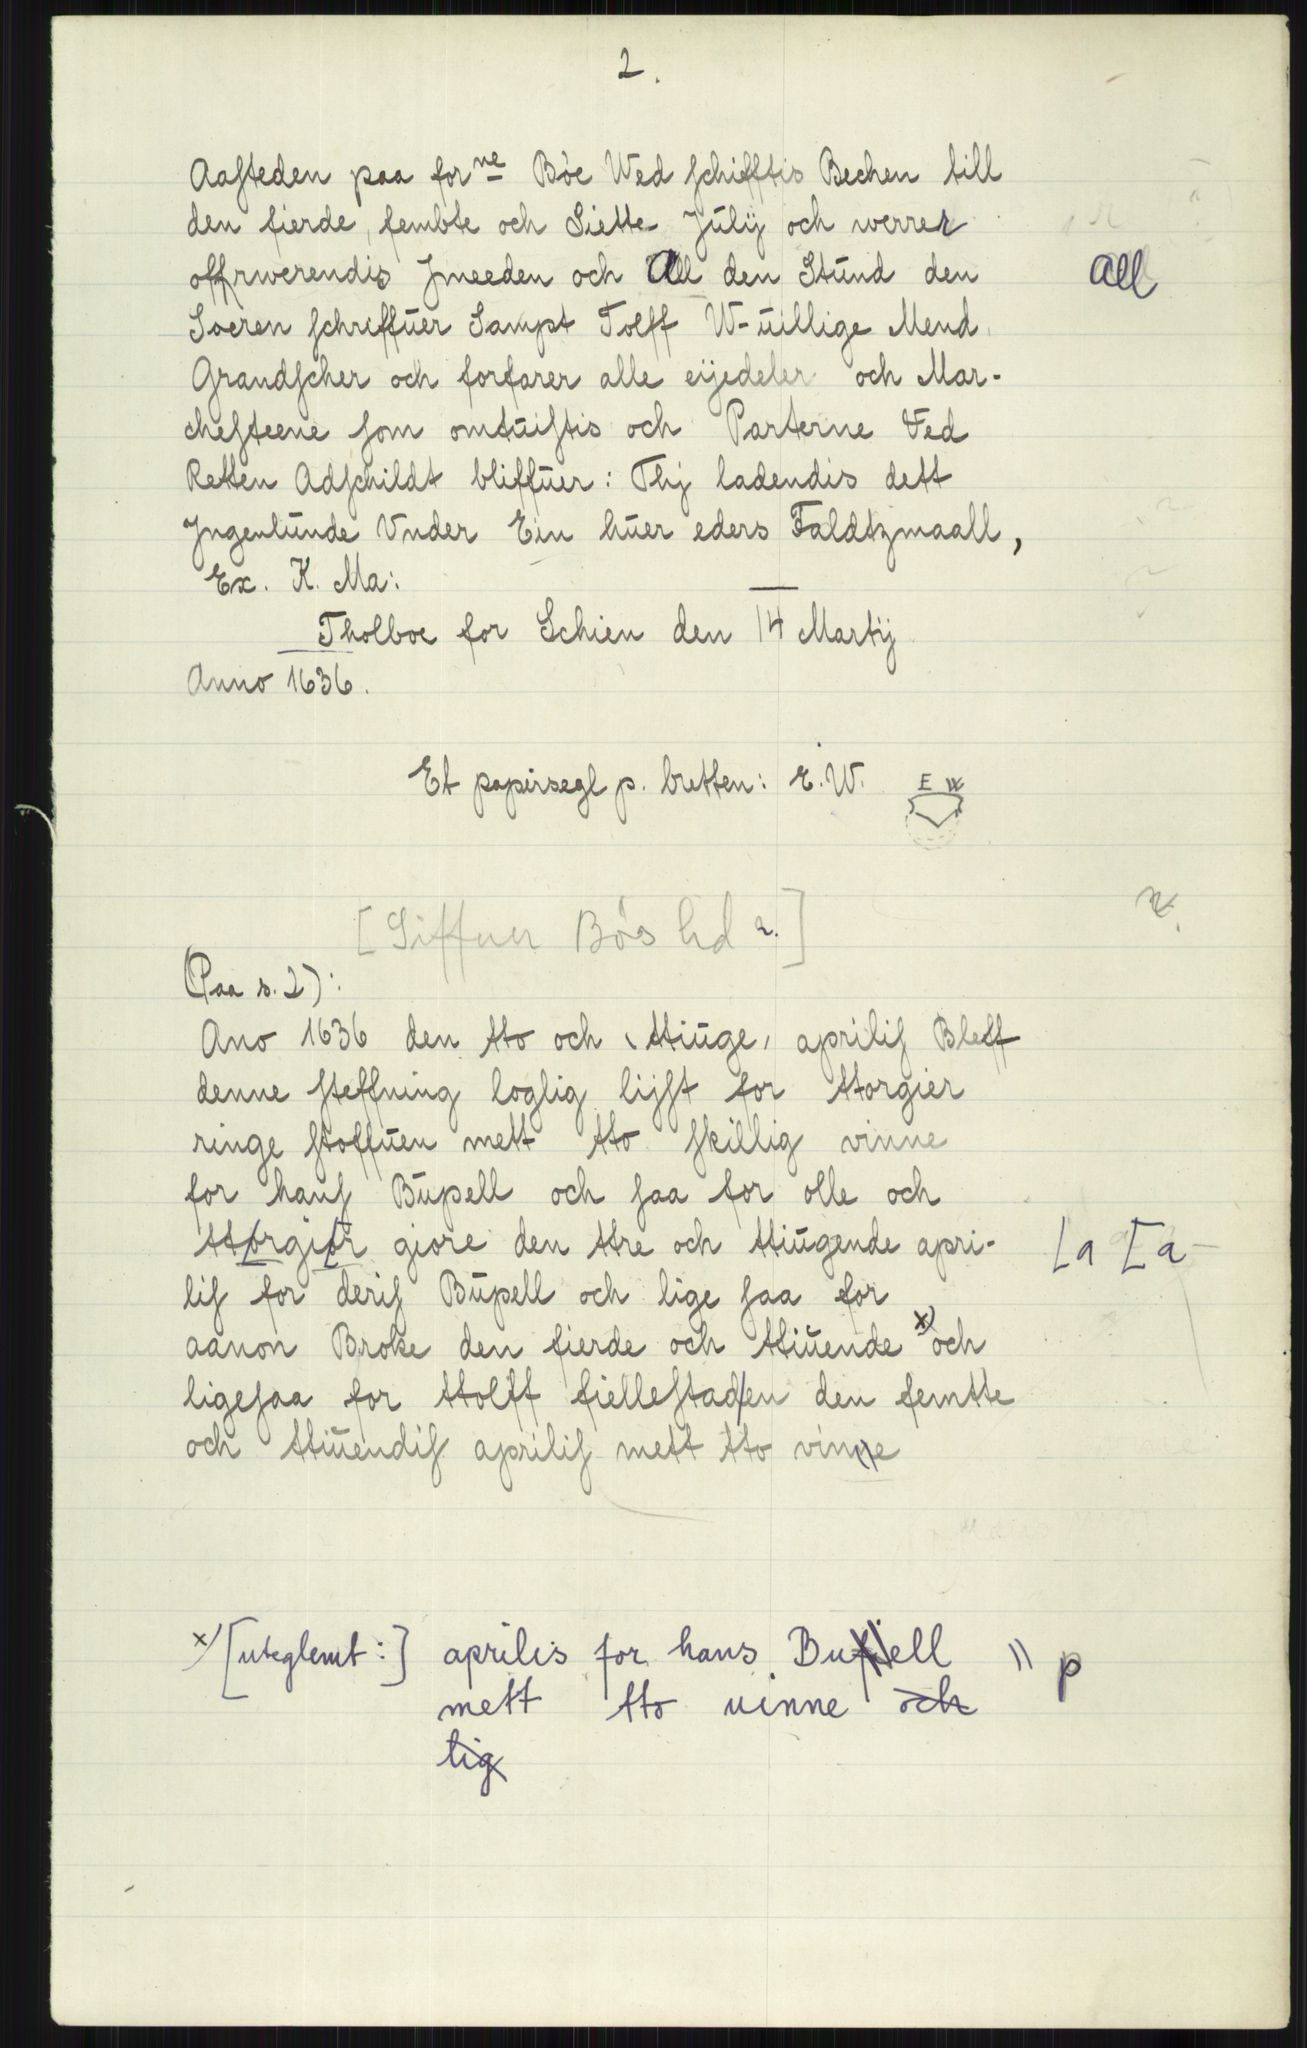 2.
Aasteden paa for ne Böe Wed schifftis Bechen till
den fierde, fembte och Siette Julij och werrer
offrwerendis Jmeeden och All den Stund den
All
Soeren schriffuer Sampt Tolff W-uillige Mend
Grandscher och forfarer alle eijedeler och Mar-
chesteene som omtuistis och Parterne Ved
Retten Adschildt bliffuer: Thj ladendis dett
Jngenlunde Vnder Ein huer eders Faldtzmaall,
Ex. K. Ma:
Tholboe for Schien den 14 Martij
Anno 1636.
Et papirsegl p. bretten: E.W.
E W
[Siffuer Bös hd 2.]
(Paa s. 2):
Ano 1636 den tto och ttiuge aprilis Bleff
denne steffning loglig lijst for ttorgier
ringe stoffuen mett tto skillig vinne
for hans Bupell och saa for olle och
ttorgier giore den ttre och ttiugende apri-
[a [a
lis for deris Bupell och lige saa for
aanon Broke den fierde och ttiuende x) och
ligesaa for ttolff fiellestaden den femtte
och ttiuendis aprilis mett tto vinne
x) [uteglemt:] aprilis for hans Bupell
p
mett tto vinne och
lig